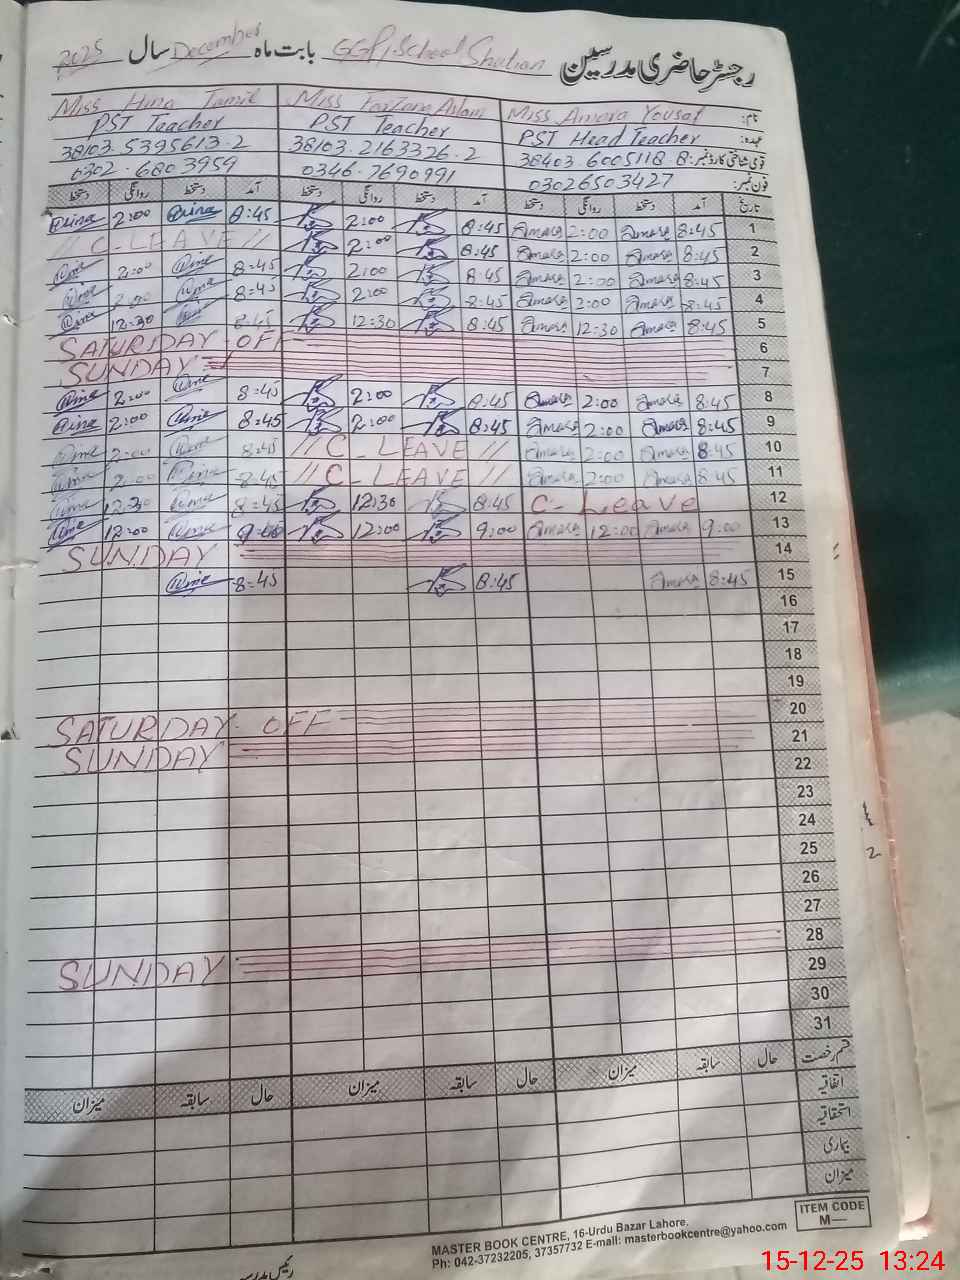 رجسٹر حاضری مدرسین GGP/School Shulian بابت ماہ December سال 2025
نام: Miss Amara Yousaf Miss Farzana Aslam Miss Hina Jamil
عہدہ: PST Head Teacher PST Teacher PST Teacher
قومی شناختی کارڈ نمبر: 38403-6005118-8 38103-2163326-2 38103-5395613-2
فون نمبر: 03026503427 0346-7690991 0302-6803959
تاریخ آمد دستخط روانگی دستخط آمد دستخط روانگی دستخط آمد دستخط روانگی دستخط
1 8:45 Amara 2:00 Amara 8:45 2:00 8:45 Hina 2:00 Hina
2 8:45 Amara 2:00 Amara 8:45 2:00 // C-LEAVE //
3 8:45 Amara 2:00 Amara 8:45 2:00 8:45 Hina 2:00 Hina
4 8:45 Amara 2:00 Amara 8:45 2:00 8:45 Hina 2:00 Hina
5 8:45 Amara 12:30 Amara 8:45 12:30 8:45 Hina 12:30 Hina
6 SATURDAY OFF
7 SUNDAY
8 8:45 Amara 2:00 Amara 8:45 2:00 8:45 Hina 2:00 Hina
9 8:45 Amara 2:00 Amara 8:45 2:00 8:45 Hina 2:00 Hina
10 8:45 Amara 2:00 Amara // C-LEAVE // 8:45 Hina 2:00 Hina
11 8:45 Amara 2:00 Amara // C-LEAVE // 8:45 Hina 2:00 Hina
12 C-Leave 8:45 12:30 8:45 Hina 12:30 Hina
13 9:00 Amara 12:00 Amara 9:00 12:00 9:00 Hina 12:00 Hina
14 SUNDAY
15 8:45 Amara 8:45 8:45 Hina
16
17
18
19
20 SATURDAY OFF
21 SUNDAY
22
23
24
25
26
27
28 SUNDAY
29
30
31
قسم رخصت حال سابقہ میزان حال سابقہ میزان حال سابقہ میزان
اتفاقیہ
استحقاقیہ
بیماری
میزان
ITEM CODE
M—
MASTER BOOK CENTRE, 16-Urdu Bazar Lahore.
Ph: 042-37232205, 37357732 E-mail: masterbookcentre@yahoo.com
رئیس مدرسہ
15-12-25 13:24